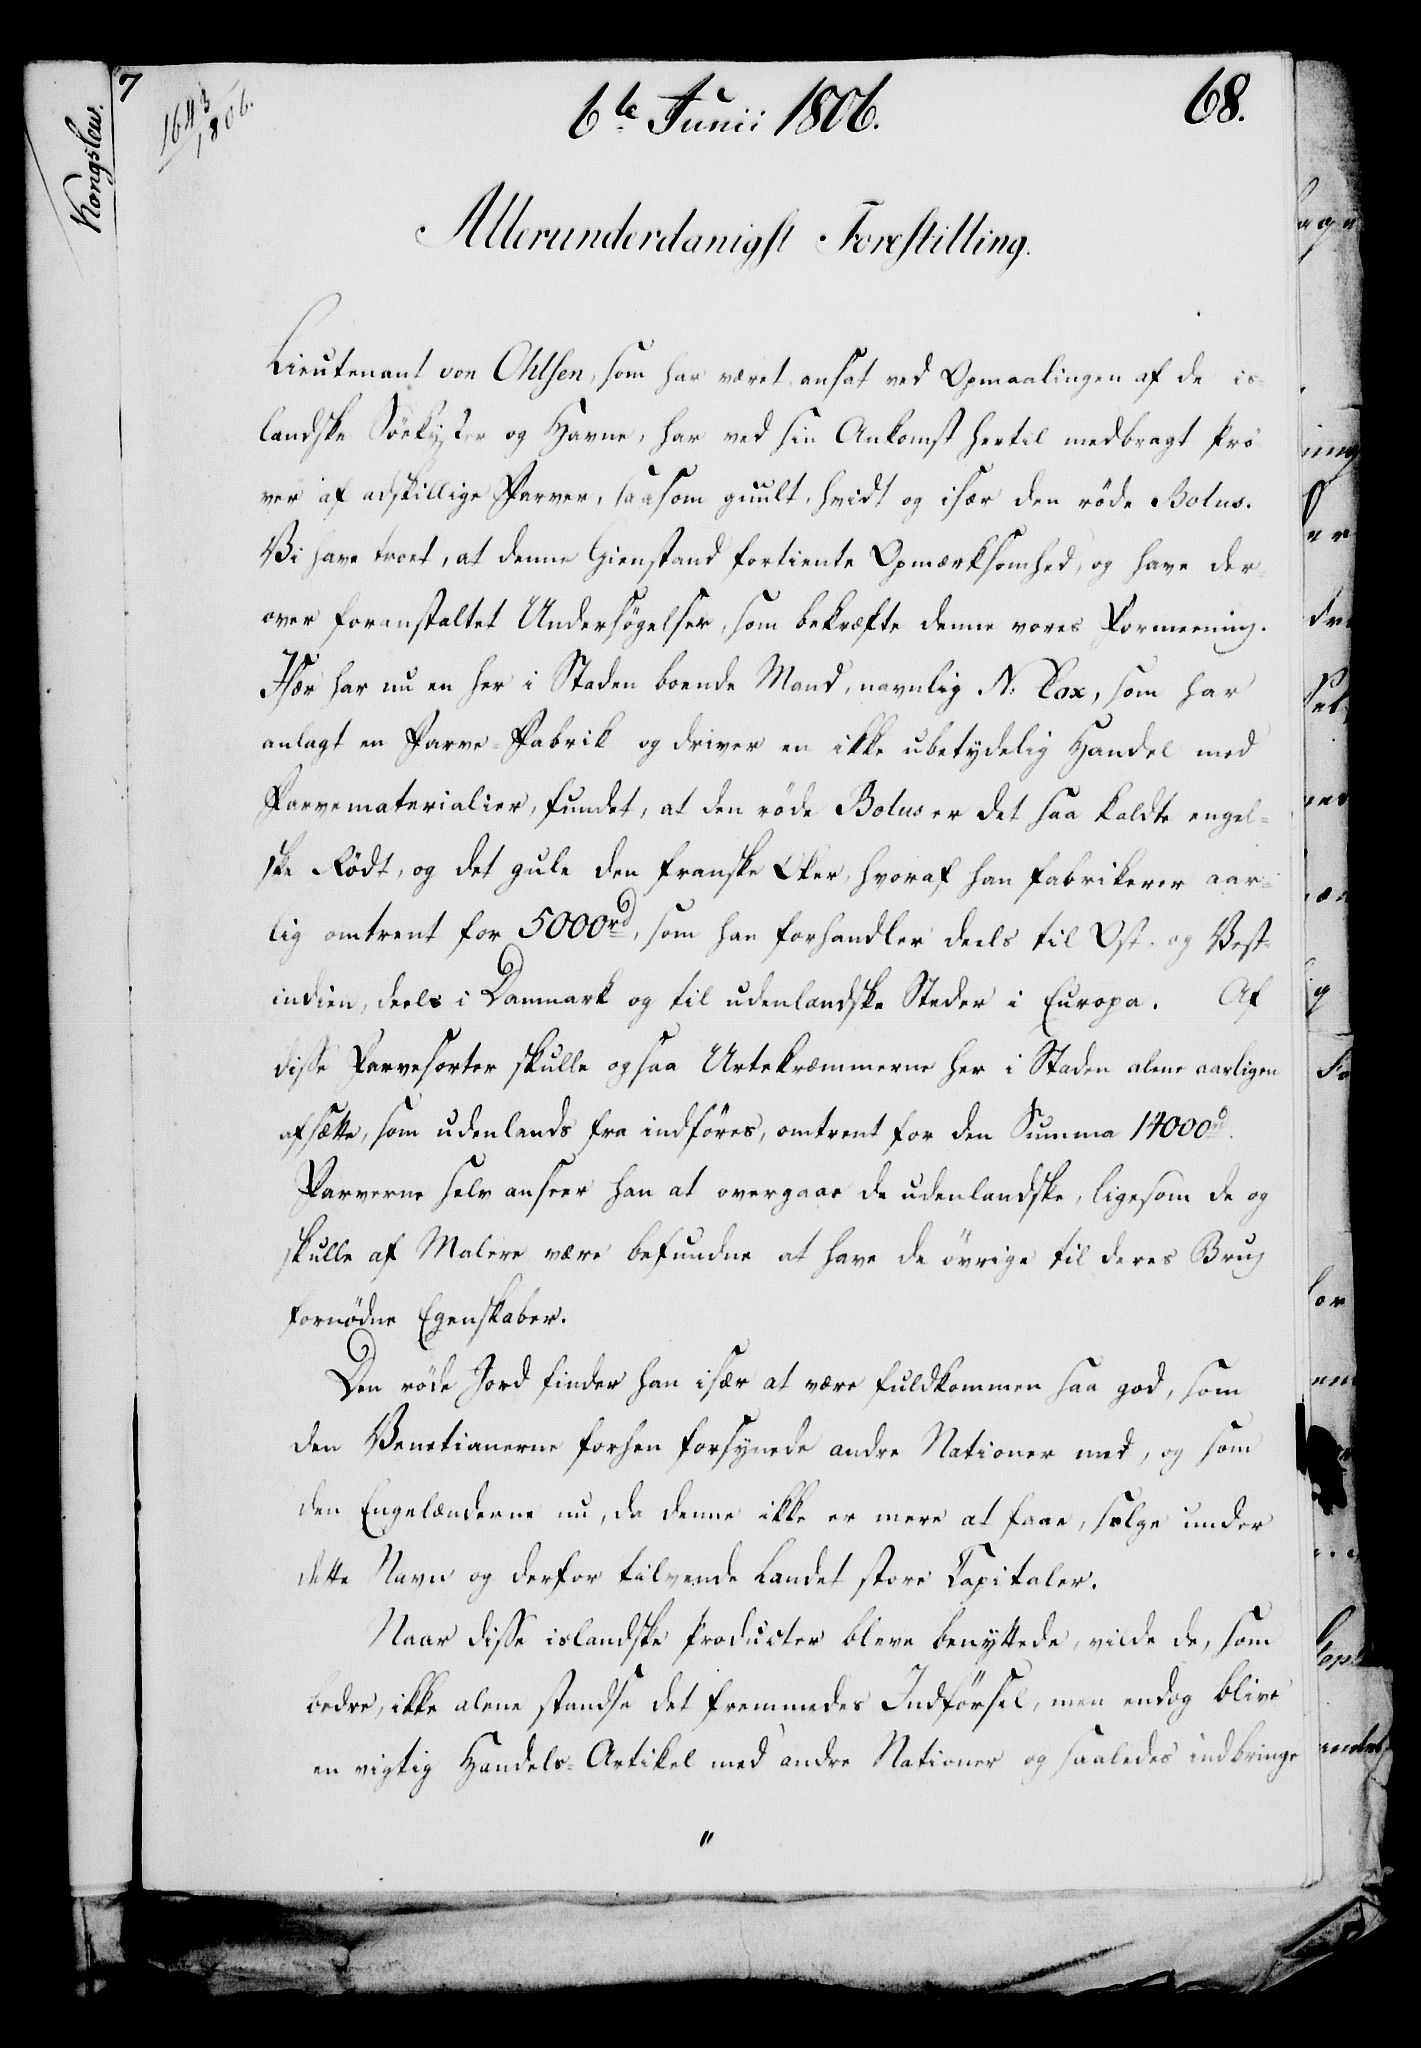 7
1643/1806.
6te Junii 1806.
68.
Allerunderdanigst Forestilling.
Lieutenant von Ohlsen, som har været ansat ved Opmaalingen af de is-
landske Söekyster og Havne, har ved sin Ankomst hertil medbragt Prö
ver af adskillige Farver, saasom guult, hvidt og især den röde Bolus.
Vi have troet, at denne Gienstand fortiente Opmærksomhed, og have der-
over foranstaltet Undersögelser, som bekræfte denne vores Formeening.
Især har nu en her i Staden boende Mand, navnlig N: Cox, som har
anlagt en Farve-Fabrik og driver en ikke ubetydelig Handel med
Farvematerialier, fundet, at den röde Bolus er det saa kaldte engel-
ske Rödt, og det gule den franske Oker, hvoraf han fabrikerer aar-
lig omtrent for 5000rd, som han forhandler deels til Ost- og Vest-
indien, deels i Danmark og til udenlandske Steder i Europa. Af
disse Farvesorter skulle ogsaa Urtekræmmerne her i Staden alene aarligen
afsætte, som udenlands fra indföres, omtrent for den Summa 14000rd.
Farverne selv anseer han at overgaae de udenlandske, ligesom de og
skulle af Malere være befundne at have de övrige til deres Brug
fornödne Egenskaber.
Den röde Jord finder han især at være fuldkommen saa god, som
den Venetianerne forhen forsynede andre Nationer med, og som
den Engelænderne nu, da denne ikke er mere at faae, sælge under
dette Navn og derfor tilvende Landet store Capitaler.
Naar disse islandske Producter bleve benyttede, vilde de, som
bedre, ikke alene standse det fremmedes Indförsel, men endog blive
en vigtig Handels-Artikel med andre Nationer og saaledes indbringe
"